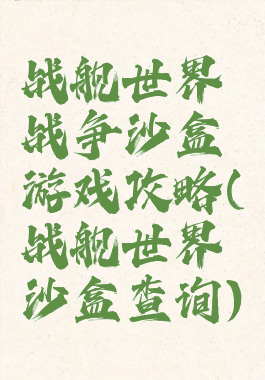 战舰世界
战争沙盒
游戏攻略(
战舰世界
沙盒查询)